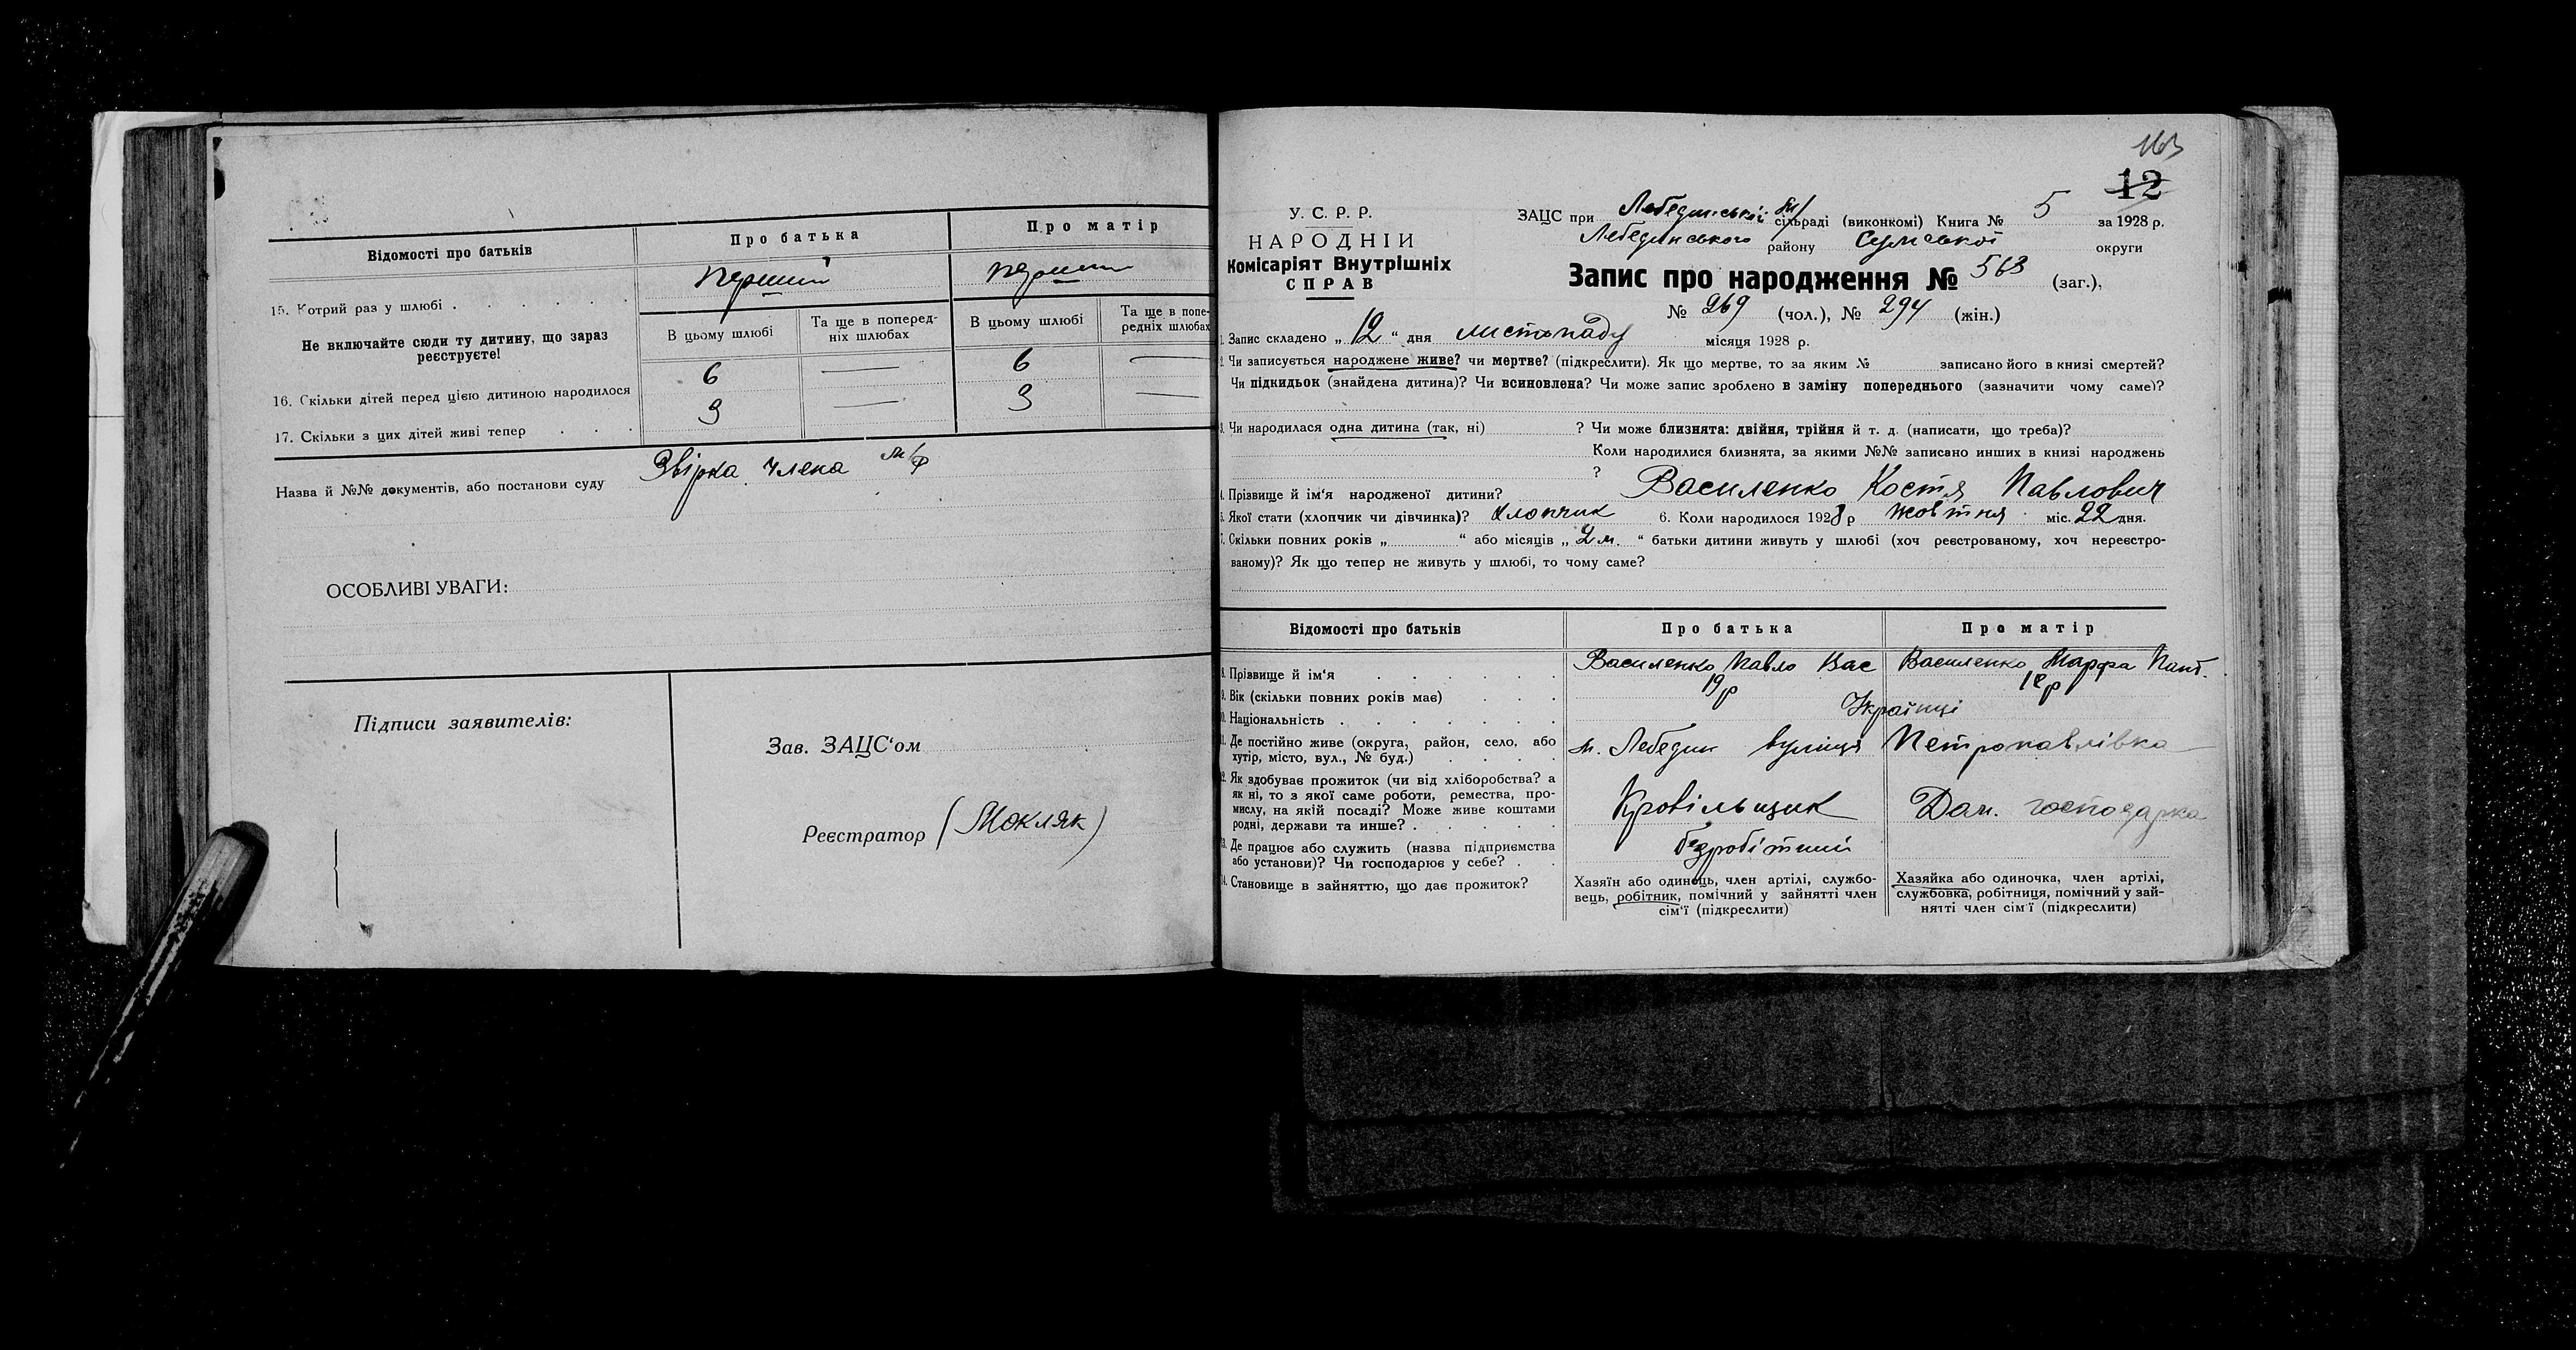 Відомості про батьків
Про батька
Про матір
15. Котрий раз у шлюбі
Перший
перший
Не включайте сюди ту дитину, що зараз
реєструєте!
В цьому шлюбі
Та ще в поперед-
ніх шлюбах
В цьому шлюбі
Та ще в попе-
редніх шлюбах
16. Скільки дітей перед цією дитиною народилося
6 — 6 —
17. Скільки з цих дітей живі тепер
3 — 3 —
Назва й №№ документів, або постанови суду
Звірка члена
ОСОБЛИВІ УВАГИ:
Підписи заявителів:
Зав. ЗАЦС‘ом
Реєстратор (Мокляк)
163
12
У. С. Р. Р.
НАРОДНІЙ
Комісаріят Внутрішніх
СПРАВ
ЗАЦС при Лебединській сільраді (виконкомі) Книга № 5 за 1928 р.
Лебединського району Сумської округи
Запис про народження № 563 (заг.),
№ 269 (чол.), № 294 (жін.)
1. Запис складено „ 12 “ дня листопаду місяця 1928 р.
2. Чи записується народжене живе? чи мертве? (підкреслити). Як що мертве, то за яким № записано його в книзі смертей?
Чи підкидьок (знайдена дитина)? Чи всиновлена? Чи може запис зроблено в заміну попереднього (зазначити чому саме)?
3. Чи народилася одна дитина (так, ні) ? Чи може близнята: двійня, трійня й т. д. (написати, що треба)?
Коли народилися близнята, за якими №№ записано инших в книзі народжень
?
4. Прізвище й ім‘я народженої дитини? Василенко Костя Павлович
5. Якої стати (хлопчик чи дівчинка)? хлопчик 6. Коли народилося 1928 р жовтня міс. 22 дня.
7. Скільки повних років „ “ або місяців „ 2 м. “ батьки дитини живуть у шлюбі (хоч реєстрованому, хоч нереєстро-
ваному)? Як що тепер не живуть у шлюбі, то чому саме?
Відомості про батьків
Про батька
Про матір
8. Прізвище й ім‘я
Василенко Павло Вас
Василенко Марфа Пант.
9. Вік (скільки повних років має)
19 р
18 р
10. Національність
Українці
11. Де постійно живе (округа, район, село, або
хутір, місто, вул., № буд.)
м. Лебедин вулиця Петропавлівка
12. Як здобуває прожиток (чи від хліборобства? а
як ні, то з якої саме роботи, ремества, про-
мислу, на якій посаді? Може живе коштами
родні, держави та инше?
Кровільщик
Дом. господарка
13. Де працює або служить (назва підприємства
або установи)? Чи господарює у себе?
безробітний
14. Становище в зайняттю, що дає прожиток?
Хазяїн або одинець, член артілі, службо-
вець, робітник, помічний у зайнятті член
сім‘ї (підкреслити)
Хазяйка або одиночка, член артілі,
службовка, робітниця, помічний у зай-
нятті член сім‘ї (підкреслити)